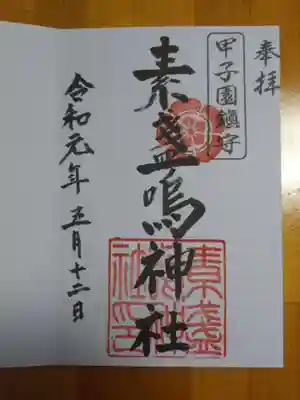 奉拝
甲子園鎮守
素盞嗚神社
令和元年五月十二日
素盞嗚神社之印